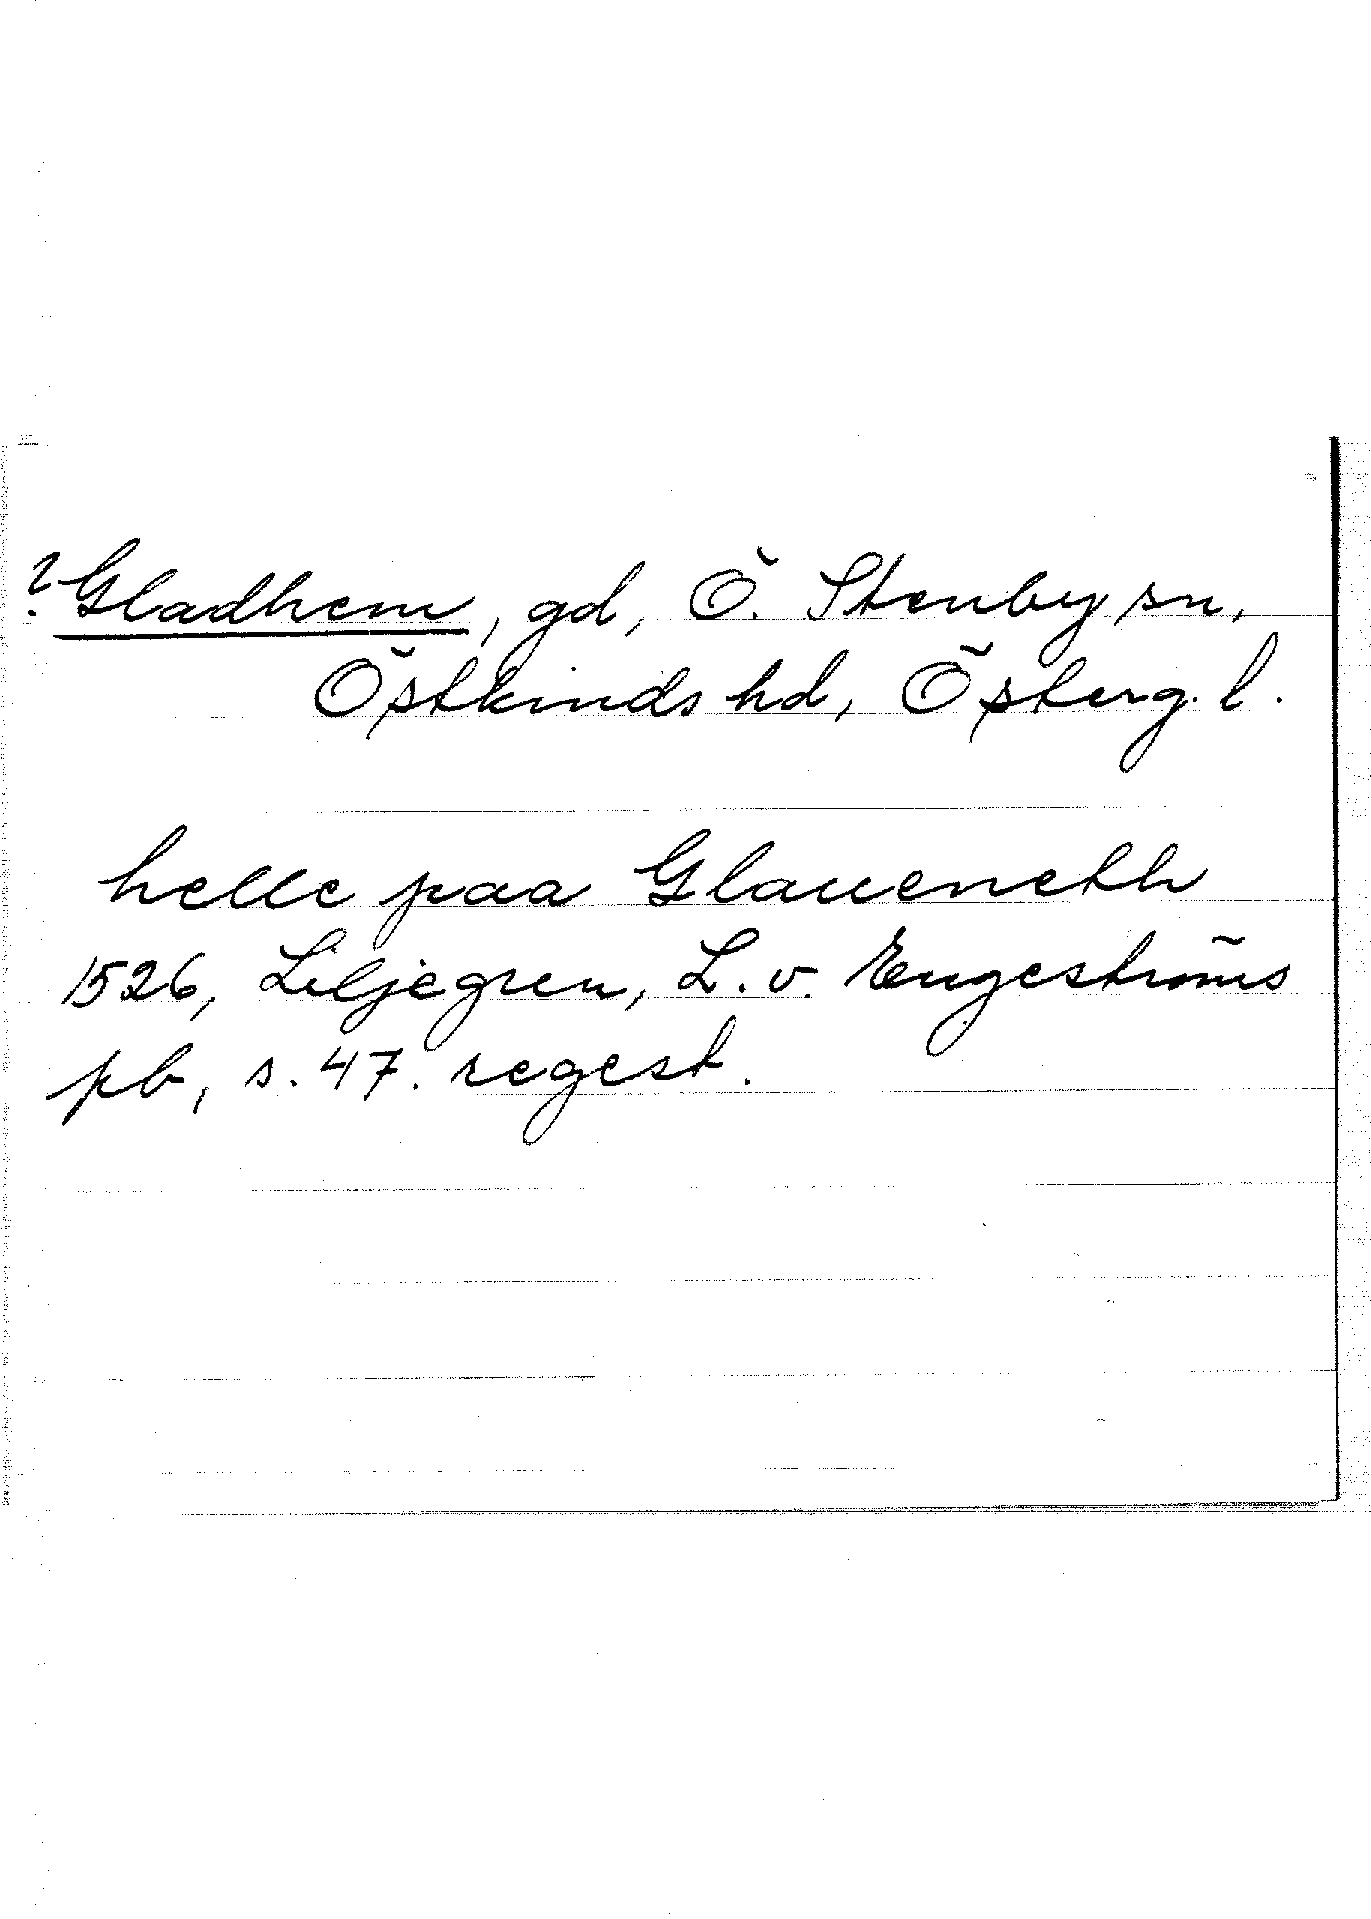 ? Gladhem, gd, Ö. Stenby sn,
Östkinds hd, Österg. l.
helle paa Glaueneth
1526, Liljegren, L. v. Engeströms
pb, s. 47. regest.